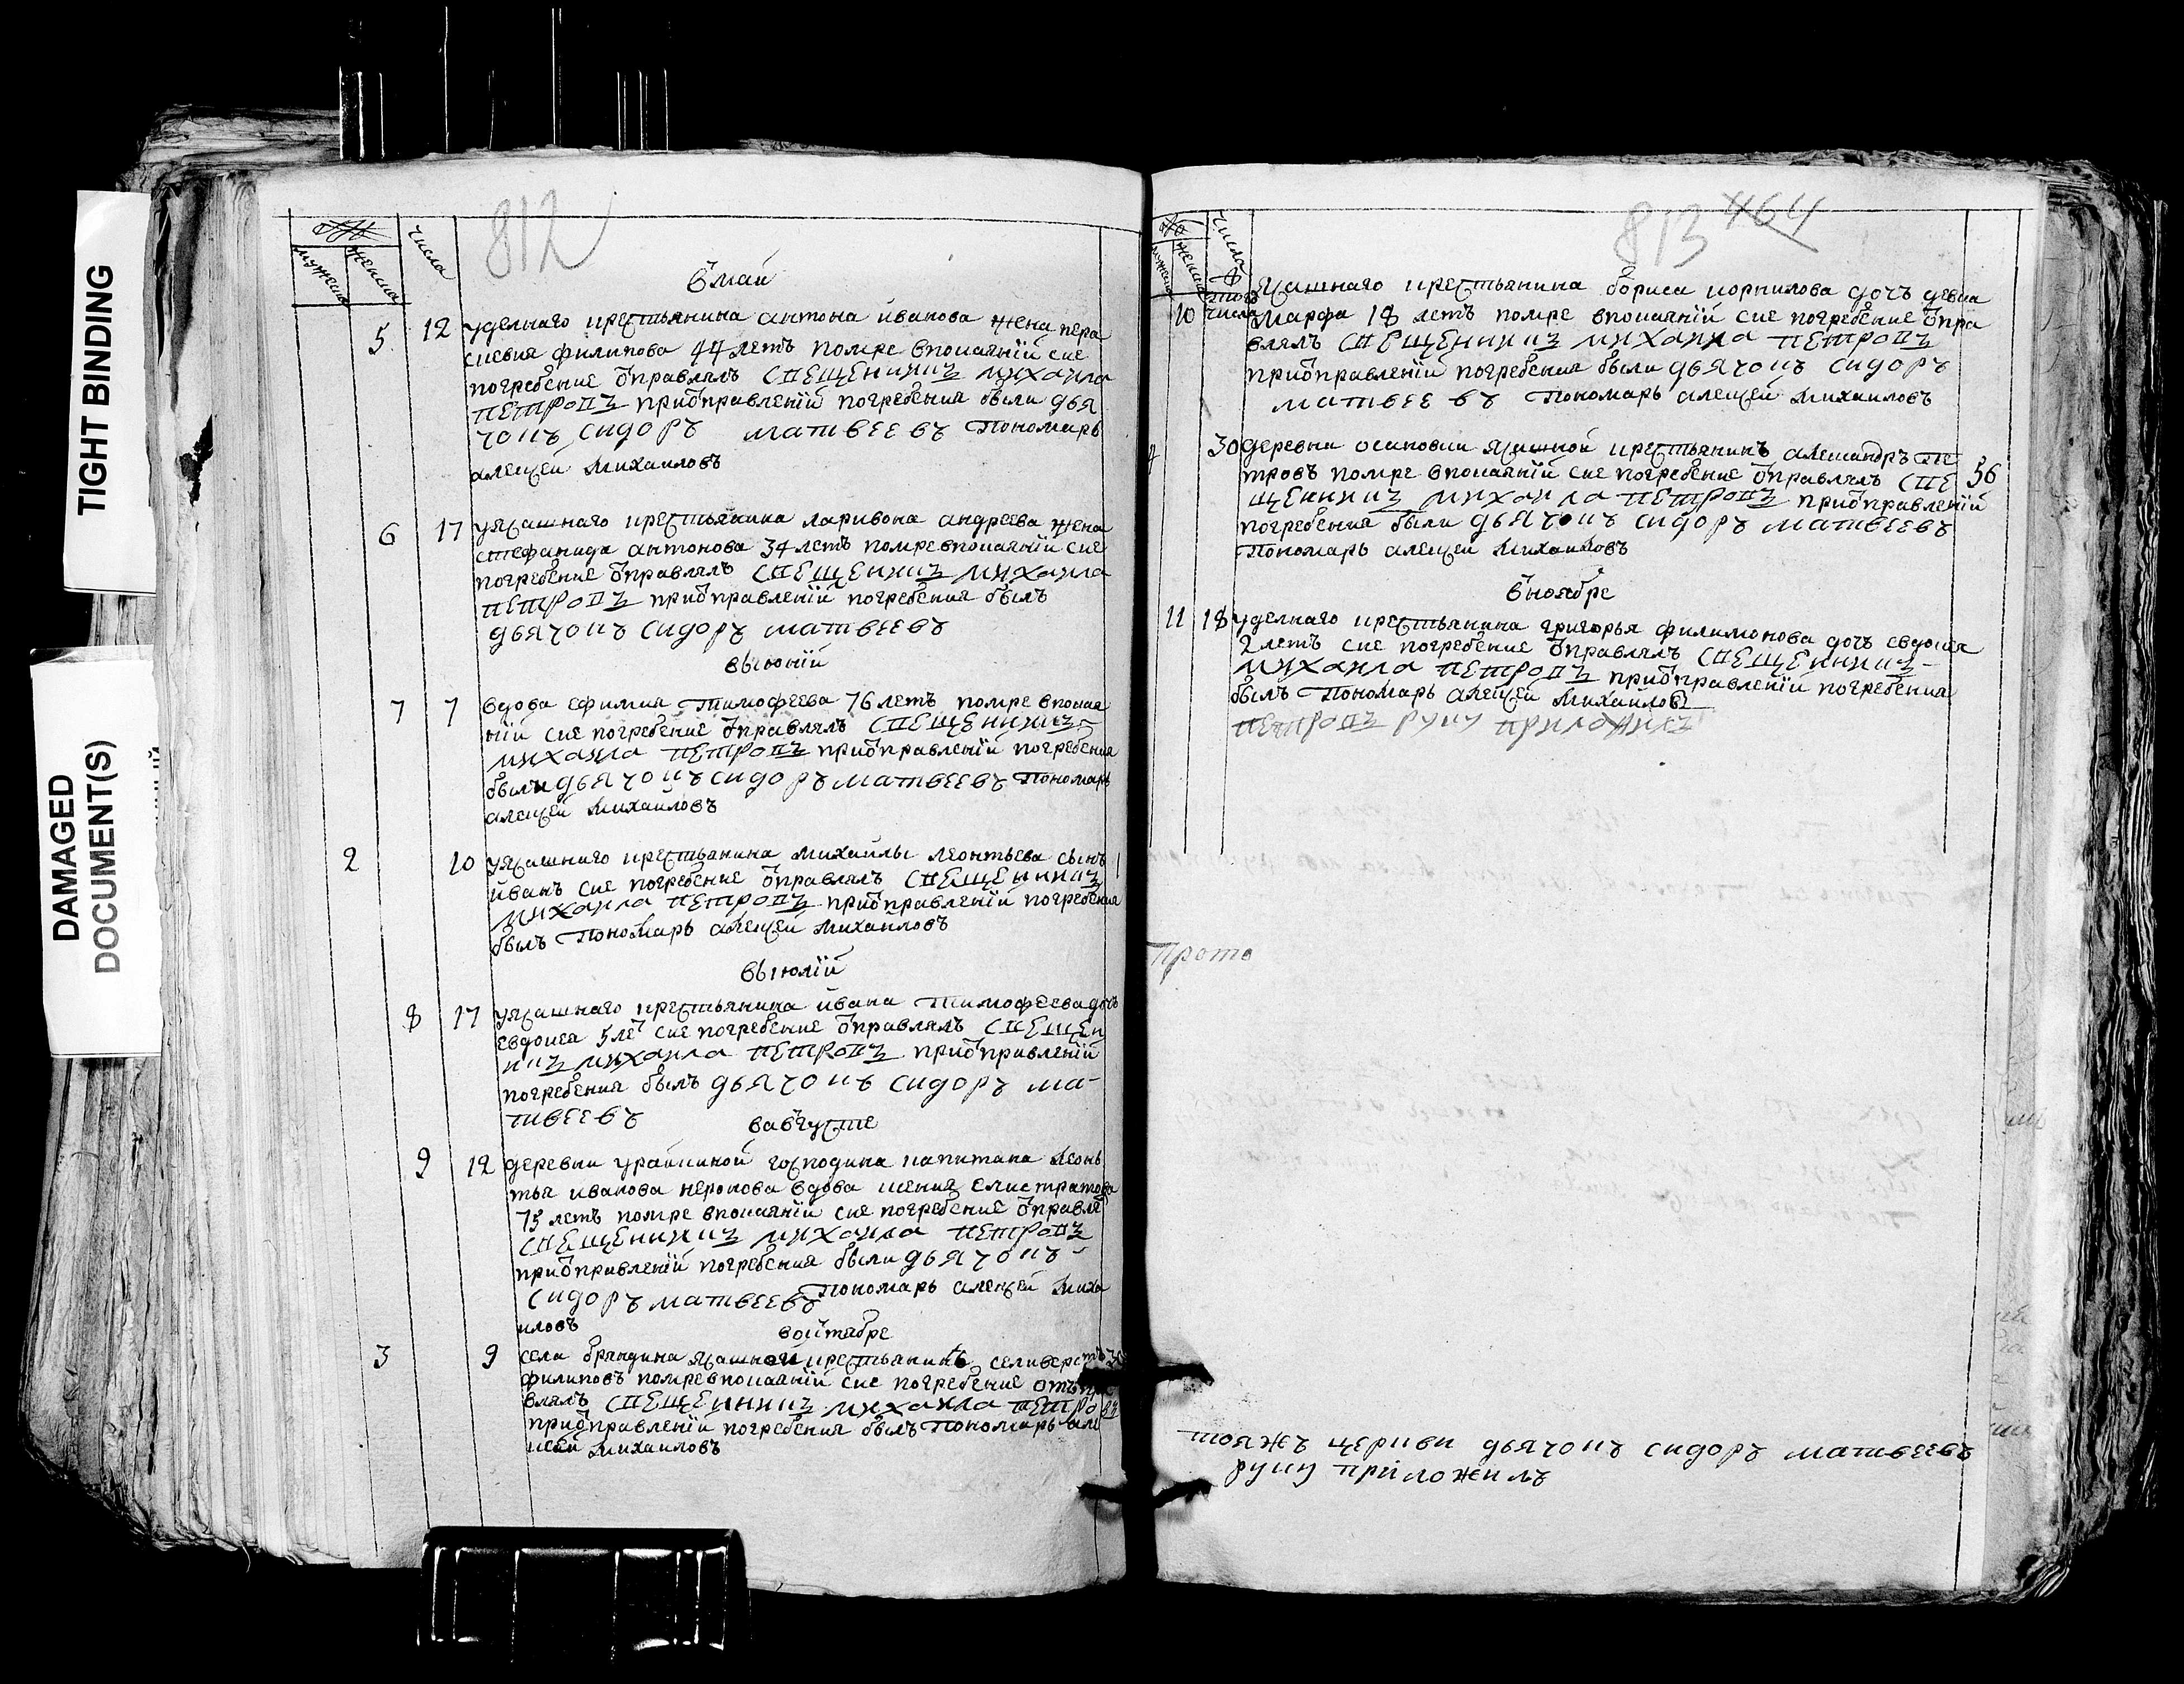 TIGHT BINDING
DAMAGED
DOCUMENT(S)
812
мужеска
женска
числа
в маи
5 12 уделнаго крестьянина антона иванова жена пера
скевия филипова 44 летъ помре впокаянїй сие
погребение ѿправлялъ свещенникъ михаила
петровъ приѿправленїй погребения были дья
чокъ сидоръ матвеевъ пономарь
алеѯей михаиловъ
6 17 уясашнаго крестьянина ларивона андреева жена
стефанида антонова 34 летъ помре впокаянїй сие
погребение ѿправлялъ свещенникъ михаила
петровъ приѿправленїй погребения былъ
дьячокъ сидоръ матвеевъ
выюнїй
7 7 вдова ефимия тимофеева 76 летъ помре впокая
нїй сие погребение ѿправлялъ свещенникъ
михаила петровъ приѿправленїй погребения
были дьячокъ сидоръ матвеевъ пономарь
алеѯей михаиловъ
2 10 уясашнаго крестьянина михаилы леонтьева сынъ
иванъ сие погребение ѿправлялъ свещенникъ
михаила петровъ приѿправленїй погребения
былъ пономарь алеѯей михаиловъ
выюлїй
8 17 уясашнаго крестьянина ивана тимофеева дочь
евдокея 5 лет сие погребение ѿправлялъ свещен
никъ михаила петровъ приѿправленїй
погребения былъ дьячокъ сидоръ ма-
твеевъ
вавгусте
9 12 деревни урайкиной господина капитана леонь
тья иванова неронова вдова ксения елистратова
75 летъ помре впокаянїй сие погребение ѿправля
свещенникъ михаила петровъ
приѿправленїй погребения были дьячокъ
сидоръ матвеевъ пономарь алеѯей миха
иловъ
воктябре
3 9 села брандина ясашной крестьянинъ селиверстъ
филиповъ помре впокаянїй сие погребение отъпра
влялъ свещенникъ михаила петровъ
приѿправленїй погребения былъ пономарь але
ксей михаиловъ
813 464
мужеска
женска
числа
10 того числа ясашнаго крестьянина бориса корнилова дочь девка
марфа 18 летъ помре впокаянїй сие погребение ѿпра
влялъ свещенникъ михаила петровъ
приѿправленїй погребения были дьячокъ сидоръ
матвеевъ пономарь алеѯей михаиловъ
4 30 деревни осиповки ясашной крестьянинъ алеѯандръ пе
тровъ помре впокаянїй сие погребение ѿправлялъ све 56
щенникъ михаила петровъ приѿправленїй
погребения были дьячокъ сидоръ матвеевъ
пономарь алеѯей михаиловъ
в ноябре
11 18 уделнаго крестьянина григорья филимонова дочь евдокея
2 летъ сие погребение ѿправлялъ свещенникъ
михаила петровъ приѿправленїй погребения
былъ пономарь алеѯей михаиловъ
петровъ руку приложилъ
прото
тояжъ церкви дьячокъ сидоръ матвеевъ
руку приложилъ